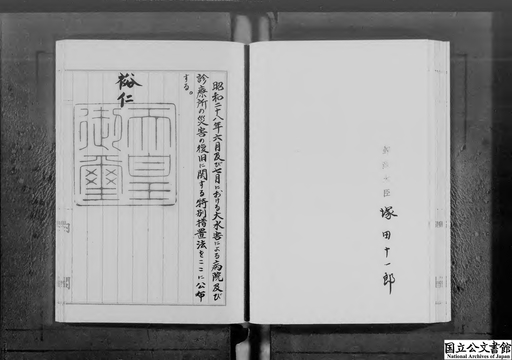 塚田十一郎
昭和二十八年六月及び七月における大水害による病院及び
診療所の災害の復旧に関する特別措置法をここに公布
する。
裕仁
天皇
御璽
国立公文書館
National Archives of Japan